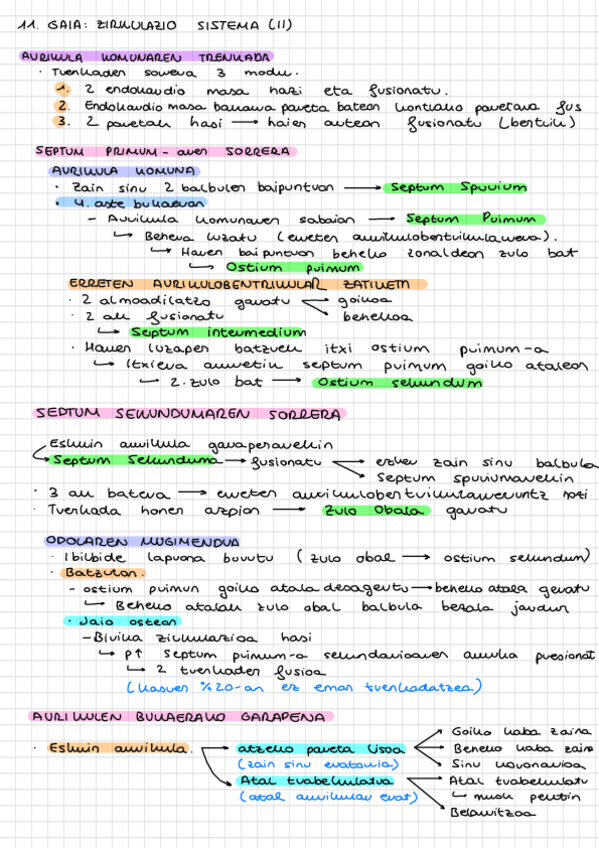 11. GAIA: ZIRKULAZIO SISTEMA (II)
AURIKULA KOMUNAREN TRENKADA
· Trenkaden sorrera 3 modu.
1. 2 endokardio masa hazi eta fusionatu.
2. Endokardio masa bakarra pareta batean kontrako paretara fus
3. 2 paretak hasi → haien artean fusionatu (bertik)
SEPTUM PRIMUM-aren SORRERA
AURIKULA KOMUNA
· Zain sinu 2 balbulen baipuntuan → Septum Spurium
· 4. aste bukaeran
- Aurikula komunaren sabaian → Septum Primum
↳ Behera luzatu (erreten aurikulobentrikularrera).
↳ Hauen baipuntuan beheko zonaldean zulo bat
↳ Ostium primum
ERRETEN AURIKULOBENTRIKULAR ZATIKETA
· 2 almoadilatzo garatu → goikoa
· 2 ak fusionatu → behekoa
↳ Septum intermedium
· Hauen luzapen batzuek itxi ostium primum-a
↳ Itxiera aurretik septum primum goiko atalean
↳ 2. zulo bat → Ostium sekundum
SEPTUM SEKUNDUMAREN SORRERA
Eskuin aurikula garapenarekin
Septum Sekunduma → fusionatu → ezker zain sinu balbula
→ Septum spuriumarekin
· 3 ak batera → erreten aurikulobentrikularreruntz hazi
· Trenkada honen azpian → Zulo Obala garatu
ODOLAREN MUGIMENDUA
· Ibilbide laburra burutu (zulo obal → ostium sekundum)
· Batzutan.
- ostium primun goiko atala desagertu → beheko atala geratu
↳ Beheko atalak zulo obal balbula bezala jardun
· Jaio ostean
- Birika zirkulazioa hasi
↳ P↑ Septum primum-a sekundarioaren aurka presionat
↳ 2 trenkaden fusioa
(Kasuen %20-an ez eman trenkadatzea)
AURIKULEN BUKAERAKO GARAPENA
· Eskuin aurikula. → atzeko pareta lisoa → Goiko kaba zaina
(zain sinu eratorria) → Beheko kaba zain
→ Sinu koronarioa
→ Atal trabekulatua → Atal trabekulatu
(atal aurikular erat) ↳ musk pektin
→ Belarritzoa